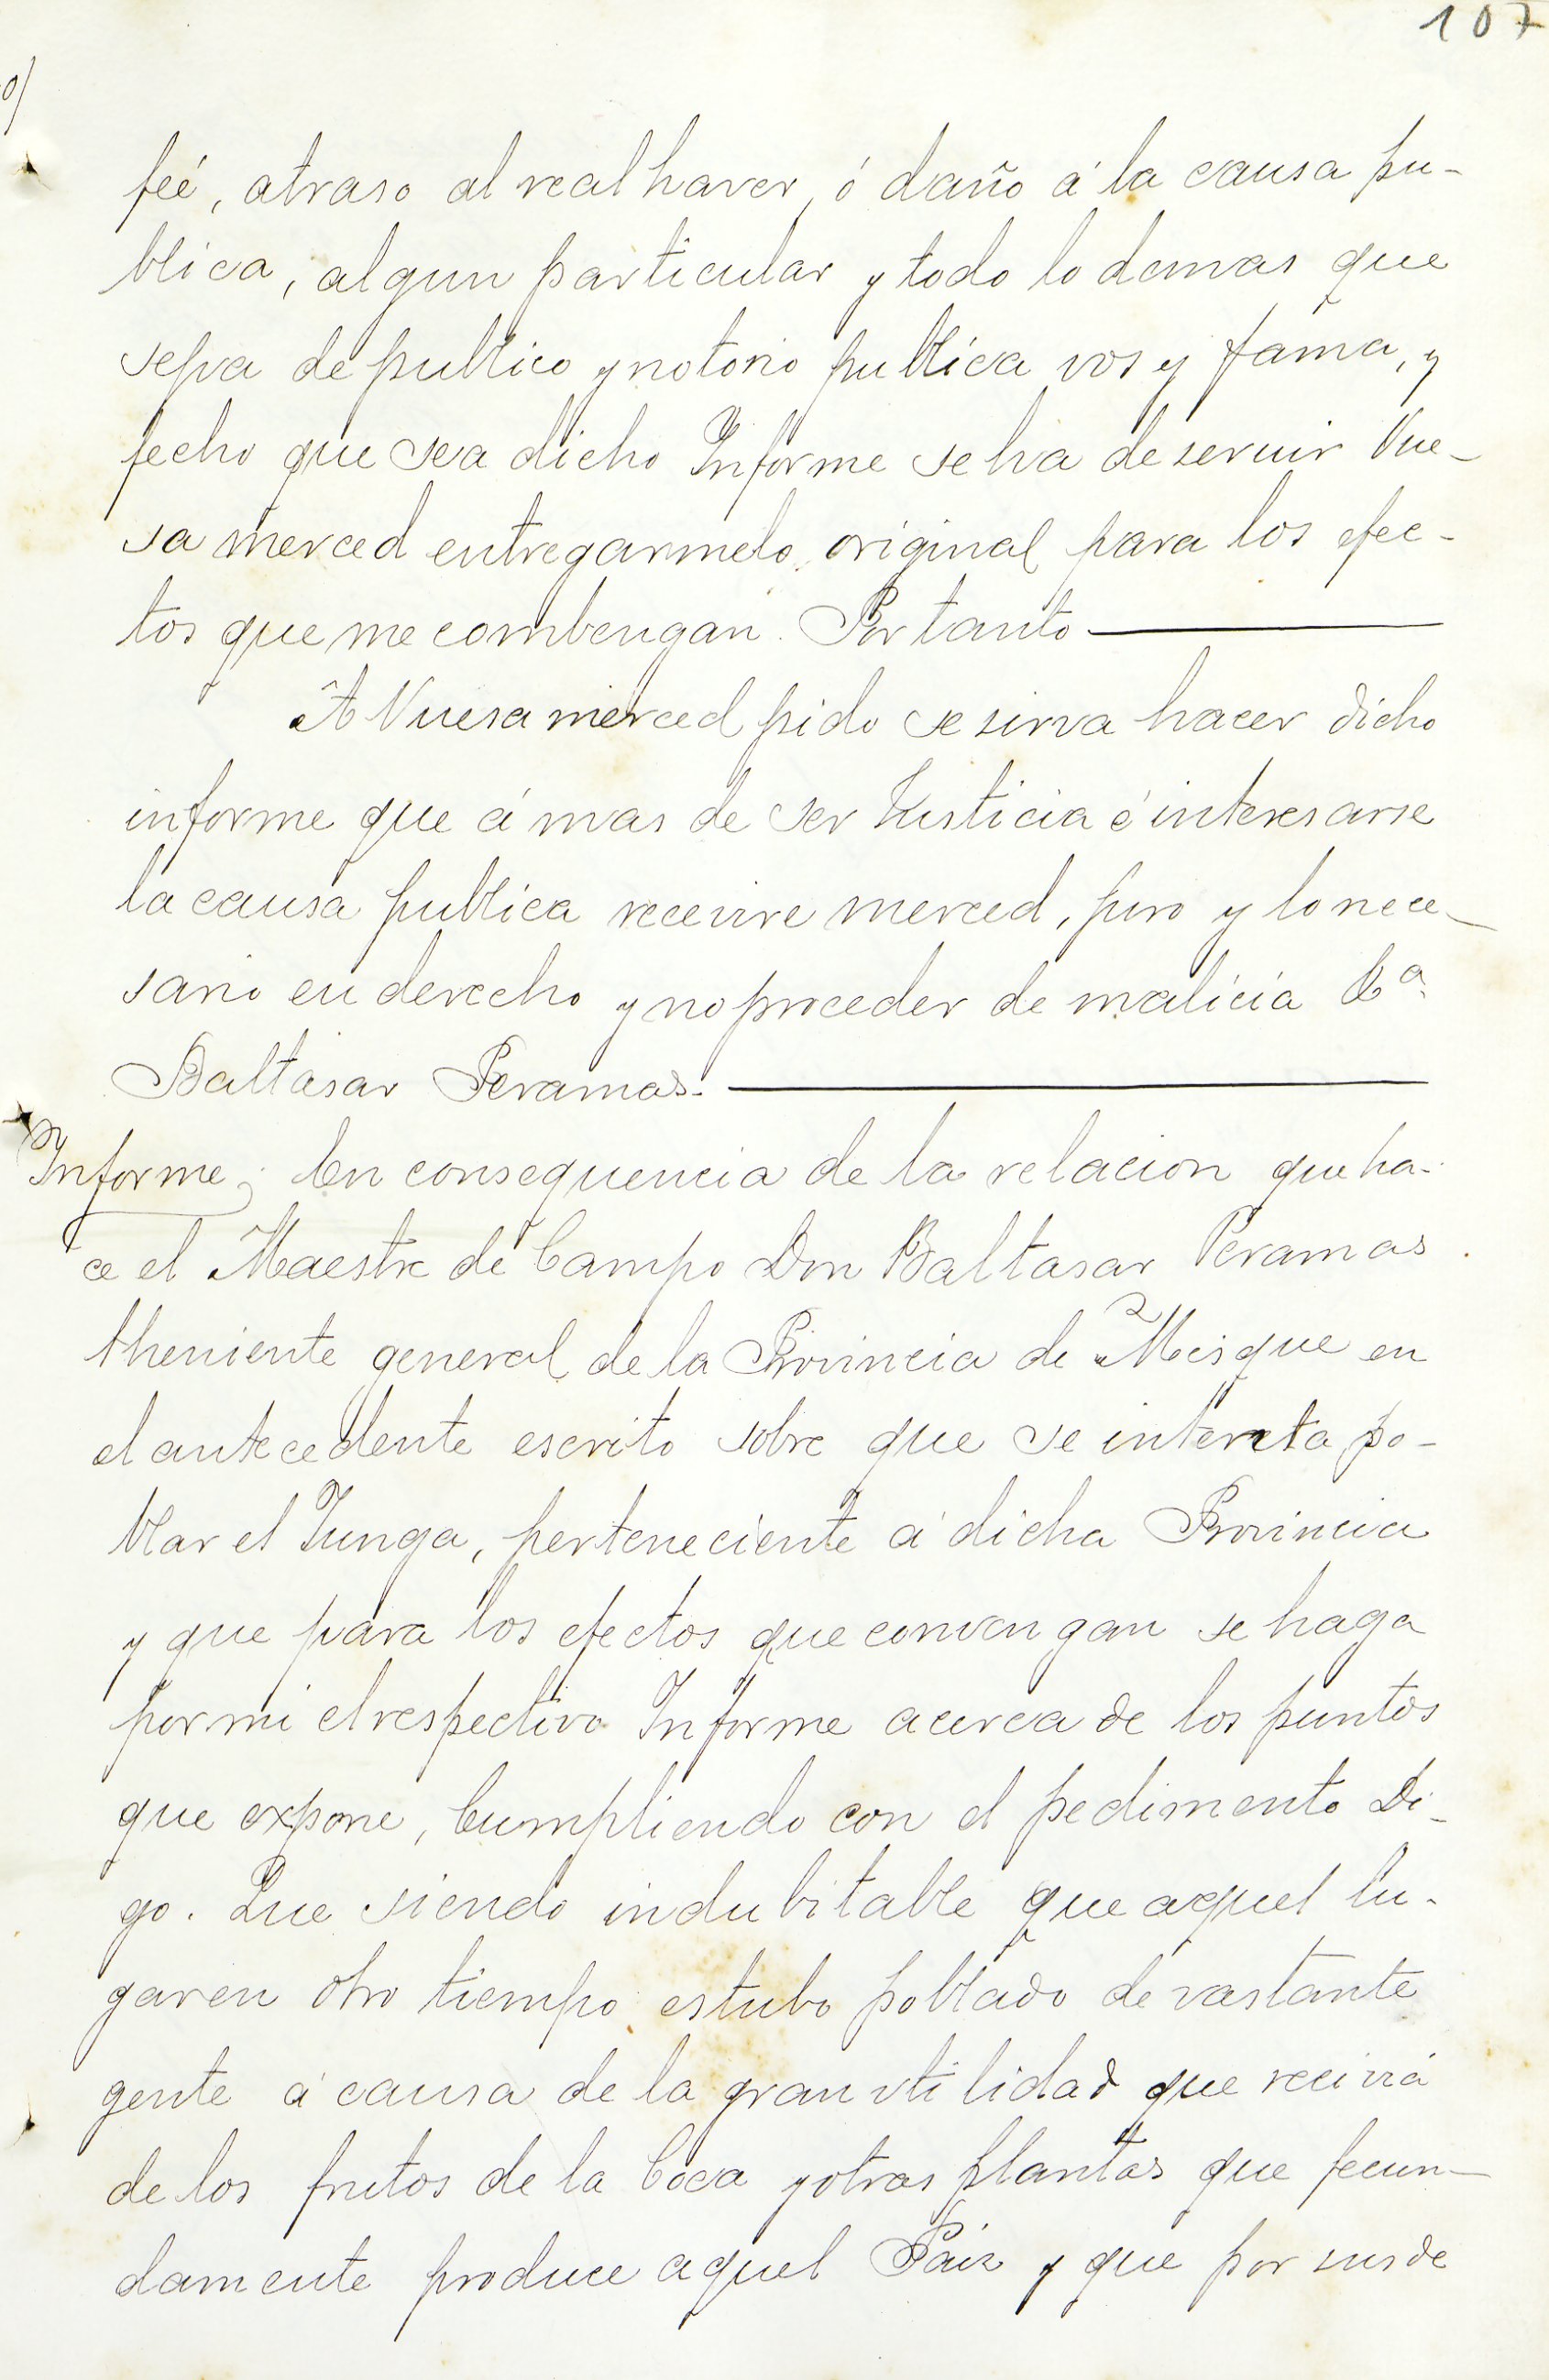 107
o/
feé, atraso al real haver, ó daño á la causa pu-
blica, algun particular y todo lo demas que
sepva de publico y notorio publica vos y fama, y
fecho que sea dicho Informe se ha de servir Vue-
sa merced entregarmelo original para los efec-
tos que me combengan. Por tanto
A Vuesa merced pido se sirva hacer dicho
informe que á mas de ser Justicia é interesarse
la causa publica recevire merced, juro y lo nece-
sario en derecho y no proceder de malicia &ª.
Baltasar Peramas.
Informe; En consequencia de la relacion que ha-
ce el Maestre de Campo Don Baltasar Peramas
theniente general de la Provincia de Misque en
el antecedente escrito sobre que se intenta po-
blar el Yunga, perteneciente á dicha Provincia
y que para los efectos que convengan se haga
por mi el respectivo Informe acerca de los puntos
que expone, Cumpliendo con el pedimento Di-
go. Que siendo indubitable que aquel lu-
gar en otro tiempo estubo poblado de vastante
gente á causa de la gran vtilidad que recivia
de los frutos de la Coca y otras plantas que fecun-
damente produce aquel Pais y que por sus de